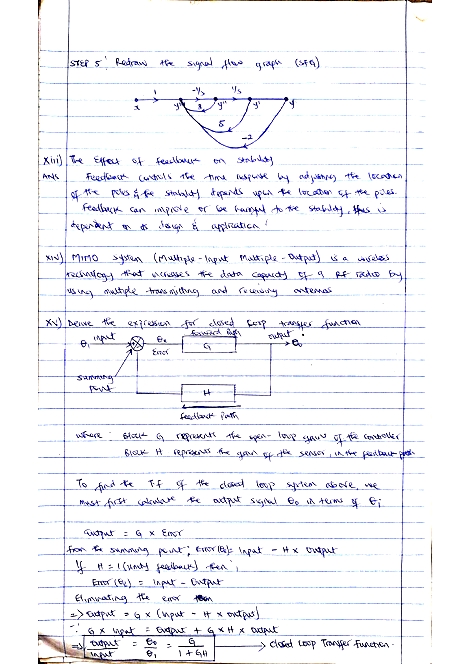 STEP 5: Redraw the signal flow graph (SFG)
1 -1/s 1/s
x y''' 3 y'' y' y
5
-2
Xiii) The Effect of feedback on stability
ANS Feedback controls the time response by adjusting the location
of the poles & the stability depends upon the location of the poles.
Feedback can improve or be harmful to the stability, this is
dependent on its design & application.
xiv) MIMO system (Multiple-Input Multiple-Output) is a wireless
technology that increases the data capacity of a RF radio by
using multiple transmitting and receiving antennas
xv) Derive the expression for closed loop transfer function
θi input θe forward path output θo
Error G
summing
point
H
feedback path
where: Block G represents the open-loop gains of the controller
Block H represents the gain of the sensor, in the feedback path
To find the T.F of the closed loop system above, we
must first calculate the output signal θo in terms of θi
Output = G x Error
from the summing point; Error(θe)= Input - H x Output
If H = 1 (unity feedback) then;
Error (θe) = Input - Output
Eliminating the error
=> Output = G x (Input - H x output)
∴ G x Input = Output + G x H x output
=> output/Input = θo/θi = G/1+GH → closed loop Transfer function.